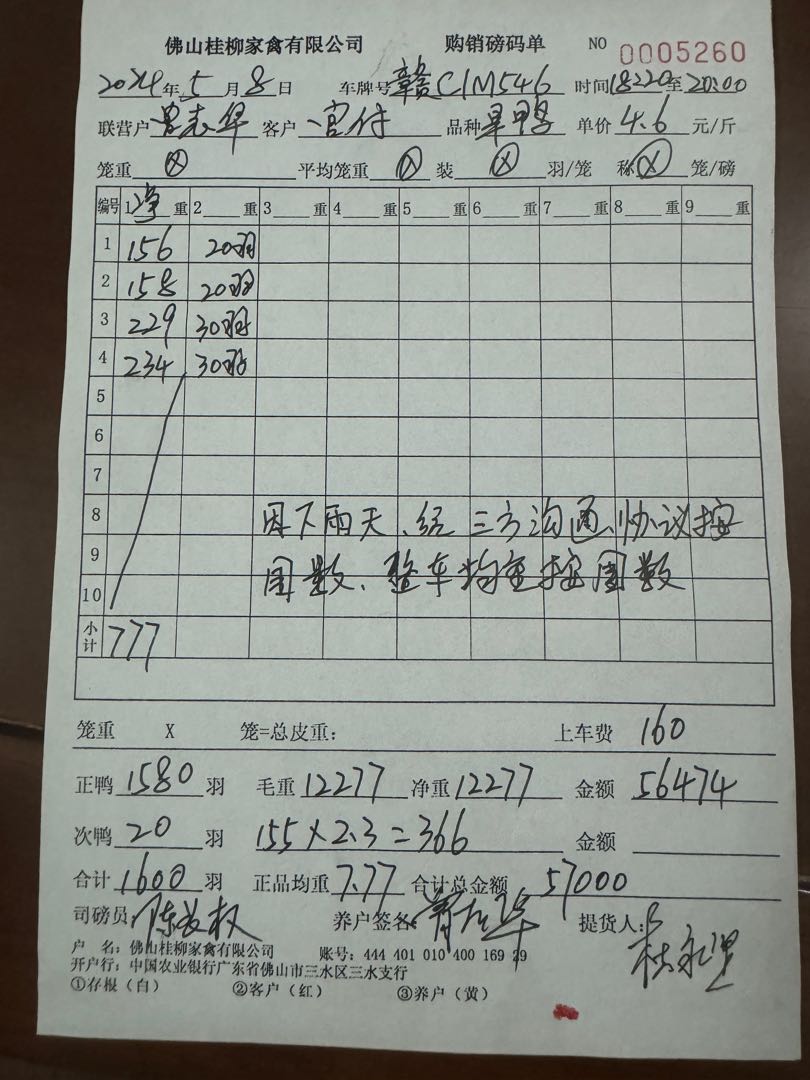 佛山桂柳家禽有限公司 购销磅码单 NO 0005260
2024年 5月 8日 车牌号 赣C1M546 时间 18:20至20:00
联营户 华 客户 官付 品种 旱鸭 单价 4.6 元/斤
笼重 ⓧ 平均笼重 ⓧ 装 ⓧ 羽/笼 称 ⓧ 笼/磅
编号 1 净 重 2 重 3 重 4 重 5 重 6 重 7 重 8 重 9 重
1 156 20羽
2 158 20羽
3 229 30羽
4 234 30羽
5
6
7
8 因下雨天、经三方沟通、协议按
9 围数、整车均重按围数
10
小计 777
笼重 X 笼=总皮重： 上车费 160
正鸭 1580 羽 毛重 12277 净重 12277 金额 56474
次鸭 20 羽 155×2.3=366 金额
合计 1600 羽 正品均重 7.77 合计总金额 57000
司磅员 陈 权 养户签名： 华 提货人：
户 名：佛山桂柳家禽有限公司 账号：444 401 010 400 169 29
开户行：中国农业银行广东省佛山市三水区三水支行
①存根（白） ②客户（红） ③养户（黄）